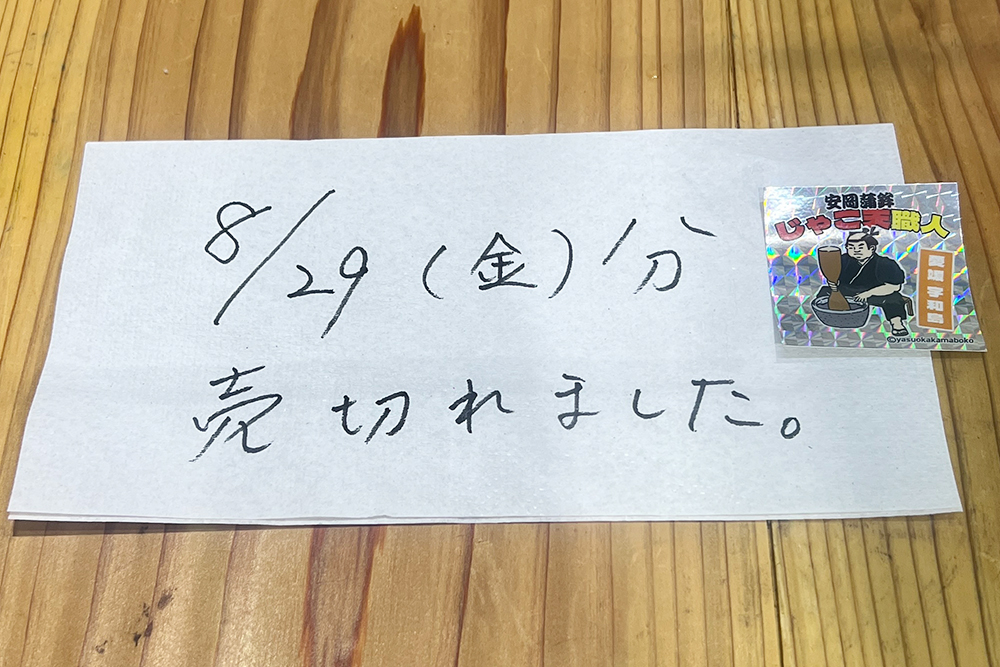 8/29(金)分
売切れました。
安岡蒲鉾
じゃこ天職人
愛媛 宇和島
©yasuokakamaboko